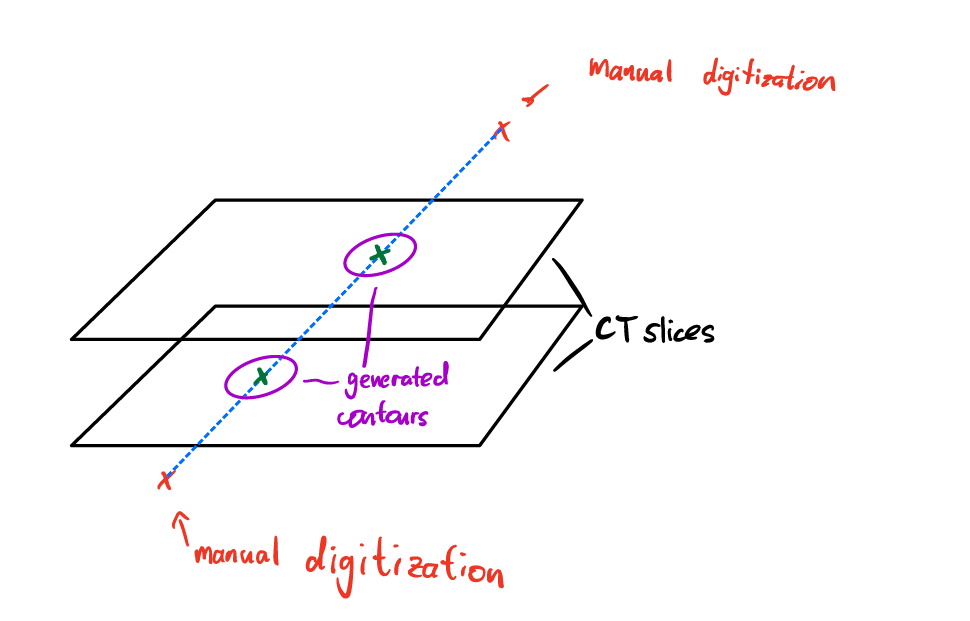 Manual digitization
CT slices
generated
contours
manual digitization